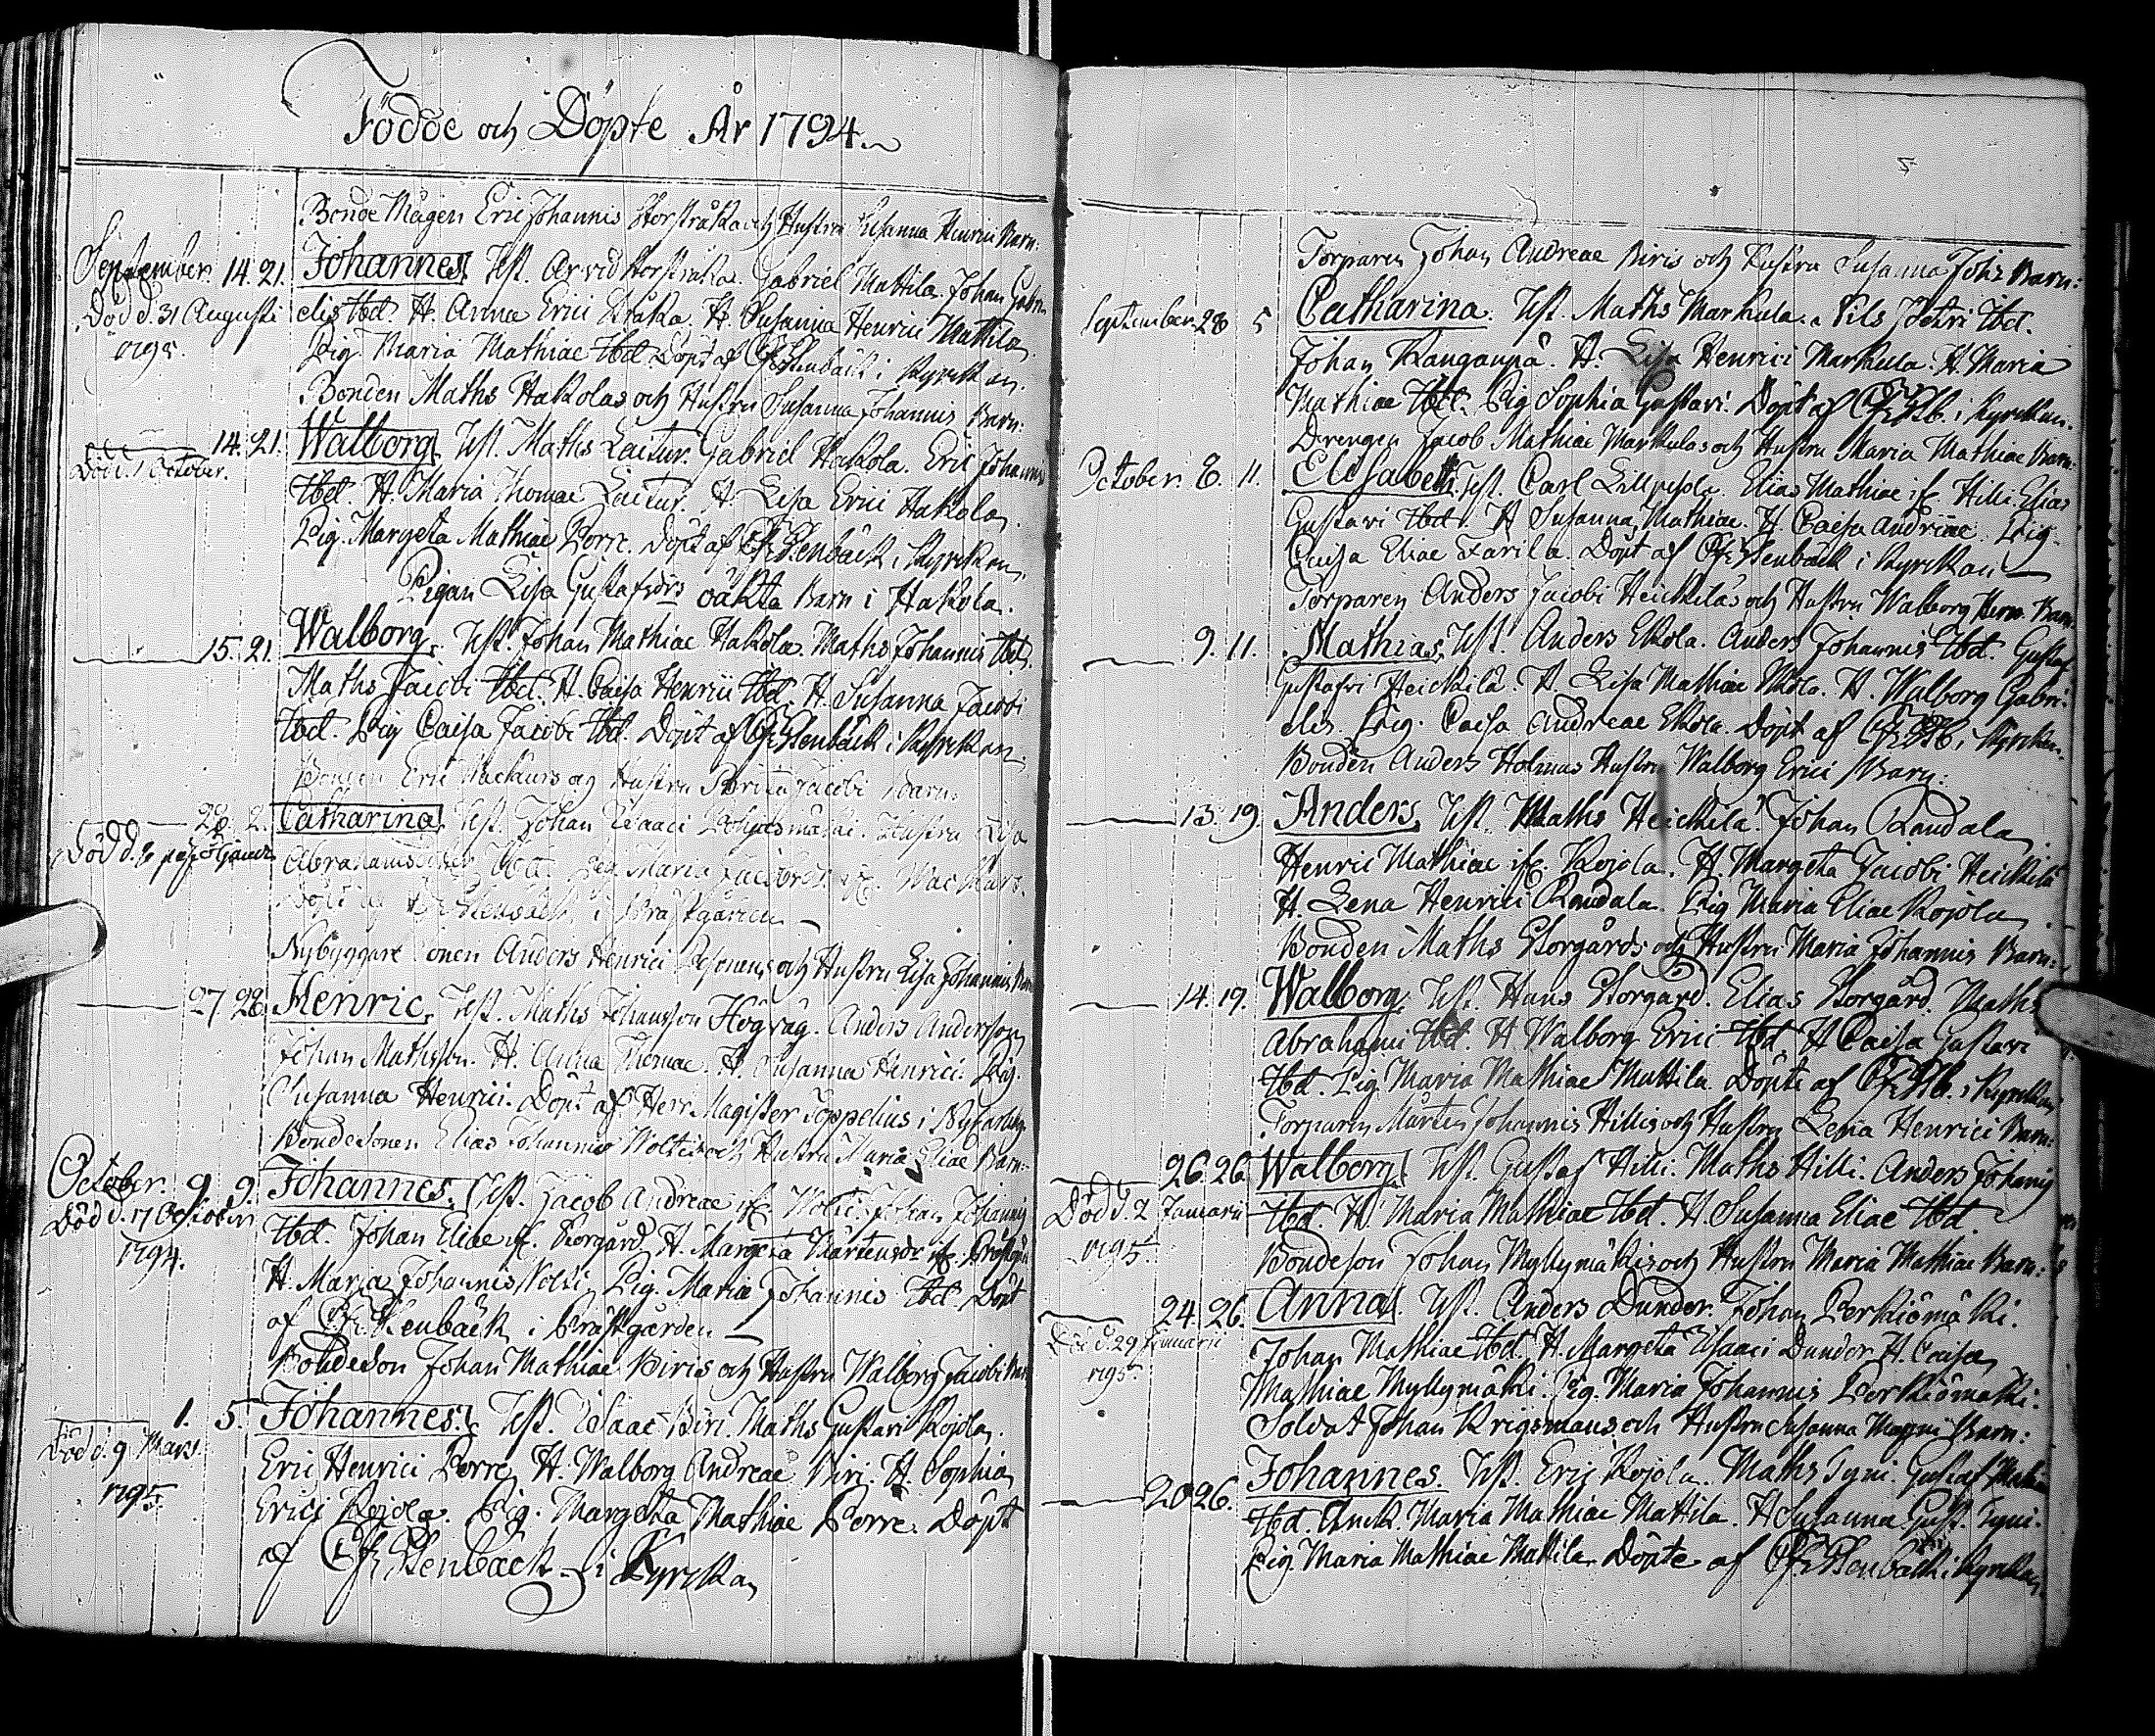 Födde och Döpte År 1794.
Bonde Mågen Eric Johannis Storstråka och Hustru Susanna Henrici Barn:
September. 14. 21. Johannes. Test. Arvid Storstråka. Gabriel Mattila. Johan Gabri-
Död d. 31 Augusti elis Ibd. H. Anna Erici Stråka. H. Susanna Henrici Mattila
1795. Pig. Maria Mathiae Ibd. Döpt af Stenbäck i Kyrckan.
Bonden Maths Hakolas och Hustru Susanna Johannis Barn:
14. 21. Walborg. Test. Maths Laitur. Gabriel Hakola. Eric Johannis
Död d. 1 October. Ibd. H. Maria Thomae Laitur. H. Lisa Erici Hakola.
Pig. Margeta Mathiae Porre. Döpt af Stenbäck i Kyrckan.
Pigan Lisa Gustafsdrs oäkta Barn i Hakola.
15. 21. Walborg. Test. Johan Mathiae Hakola. Maths Johannis Ibd.
Maths Jacobi Ibd. H. Caisa Henrici Ibd. H. Susanna Jacobi
Ibd. Pig Caisa Jacobi Ibd. Döpt af Stenbäck i Kyrckan.
Bonden Eric och Hustru Jacobi Barn:
28. 2. Catharina. Test. Johan Isaaci Hustru Lisa
Död d. Ibd. Pig Maria
Döpt af Stenbäck i Prästgården
Nybyggare Sonen Anders Henrici och Hustru Lisa Johannis Barn
27 28. Henric. Test. Maths Johansson Högväg. Anders Andersson
Johan Mathsson. H. Anna Thomae. H. Susanna Henrici. Pig.
Susanna Henrici. Döpt af Herr Magister Toppelius i Nycarleby
Bondesonen Elias Johannis Woltis och Hustru Maria Eliae Barn:
October. 9. 9. Johannes. Test. Jacob Andreae Wolti. Johan Johannis
Död d. 17 October Ibd. Johan Eliae Storgård. H. Margeta Mårtensdr
1794. H. Maria Johannis Wolti. Pig. Maria Johannis Ibd. Döpt
af Stenbäck i Prästgården
Bondeson Johan Mathiae Biris och Hustru Walborg Jacobi Barn
1. 5. Johannes. Test. Isaac Biri. Maths Gustavi Kojola.
Död d. 9 Mars Eric Henrici Porre. H. Walborg Andreae Biri. H. Sophia
1795. Erici Kojola. Pig. Margeta Mathiae Porre. Döpt
af Stenbäck i Kyrckan
Torparen Johan Andreae Biris och Hustru Susanna Joh: Barn:
September. 28 5 Catharina. Test. Maths Markula. Nils Petri Ibd.
Johan Kanganpä. H. Lisa Henrici Markula. H. Maria
Mathiae Ibd. Pig Sophia Gustavi. Döpt af i Kyrckan.
Drengen Jacob Mathiae Markulas och Hustru Maria Mathiae Barn:
October. 8. 11. Elisabeth. Test. Carl Elias Mathiae Hilli. Elias
Gustavi Ibd. H Susanna Mathiae. H. Caisa Andreae. Pig.
Caisa Eliae Farila. Döpt af Stenbäck i Kyrckan
Torparen Anders Jacobi Heickiläs och Hustru Walborg Barn.
9. 11. Mathias. Test. Anders Ekola. Anders Johannis Ibd. Gustaf
Gustafvi Heickilä. H Lisa Mathiae Ekola. H. Walborg Gabri-
elis. Pig. Caisa Andreae Ekola. Döpt af i Kyrckan.
Bonden Anders Holmas Hustru Walborg Erici Barn:
13. 19. Anders. Test. Maths Heickilä. Johan Randala
Henric Mathiae Kojola. H. Margeta Jacobi Heickilä
H. Lena Henrici Randala. Pig Maria Eliae Kojola
Bonden Maths Storgårds och Hustru Maria Johannis Barn:
14. 19. Walborg. Test. Hans Storgård. Elias Storgård. Maths
Abrahami Ibd. H. Walborg Erici Ibd H Caisa Gustavi
Ibd. Pig. Maria Mathiae Mattila. Döpte af i Kyrckan
Torparen Mårten Johannis Hillis och Hustru Lena Henrici Barn:
26. 26. Walborg. Test. Gustaf Hilli. Maths Hilli. Anders Johannis
Död d. 2 Januarii Ibd. H. Maria Mathiae Ibd. H. Susanna Eliae Ibd.
1795. Bondeson Johan Myllymäkis och Hustru Maria Mathiae Barn:
24. 26. Anna. Test. Anders Dunder. Johan Perkiömäki.
Död d. 29 Januarii Johan Mathiae Ibd. H. Margeta Isaaci Dunder. H. Caisa
1795. Mathiae Myllymäki. Pig. Maria Johannis Perkiömäki.
Soldat Johan Krigsmans och Hustru Susanna Magni Barn:
20 26. Johannes. Test. Eric Kojola. Maths Tyni. Gustaf
Ibd. Maria Mathiae Mattila. H Susanna Gust. Tyni.
Pig. Maria Mathiae Mattila. Döpte af Stenbäck i Kyrckan.